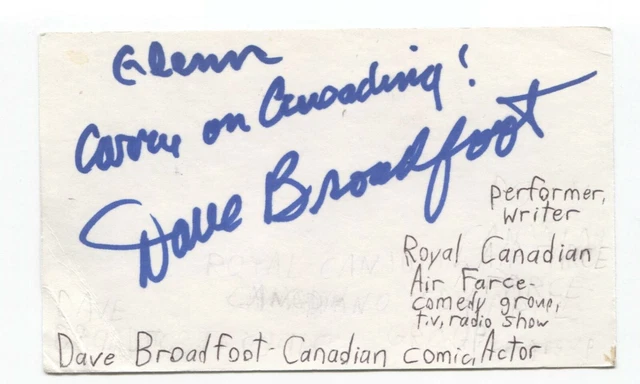 Glenn
Carry on Canading!
Dave Broadfoot
performer,
writer
Royal Canadian
Air Farce-
comedy group,
t.v, radio show
Dave Broadfoot - Canadian comic, Actor